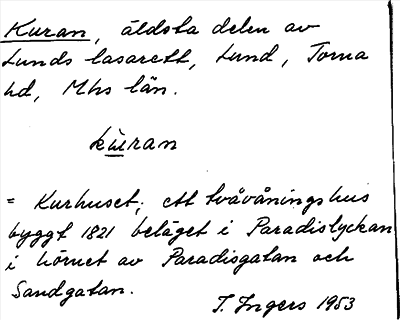 Kuran, äldsta delen av
Lunds lasarett, Lund, Torna
hd, Mhs län.
kùran
= Kurhuset; ett tvåvåningshus
byggt 1821 beläget i Paradislyckan
i hörnet av Paradisgatan och
Sandgatan.
T. Ingers 1953